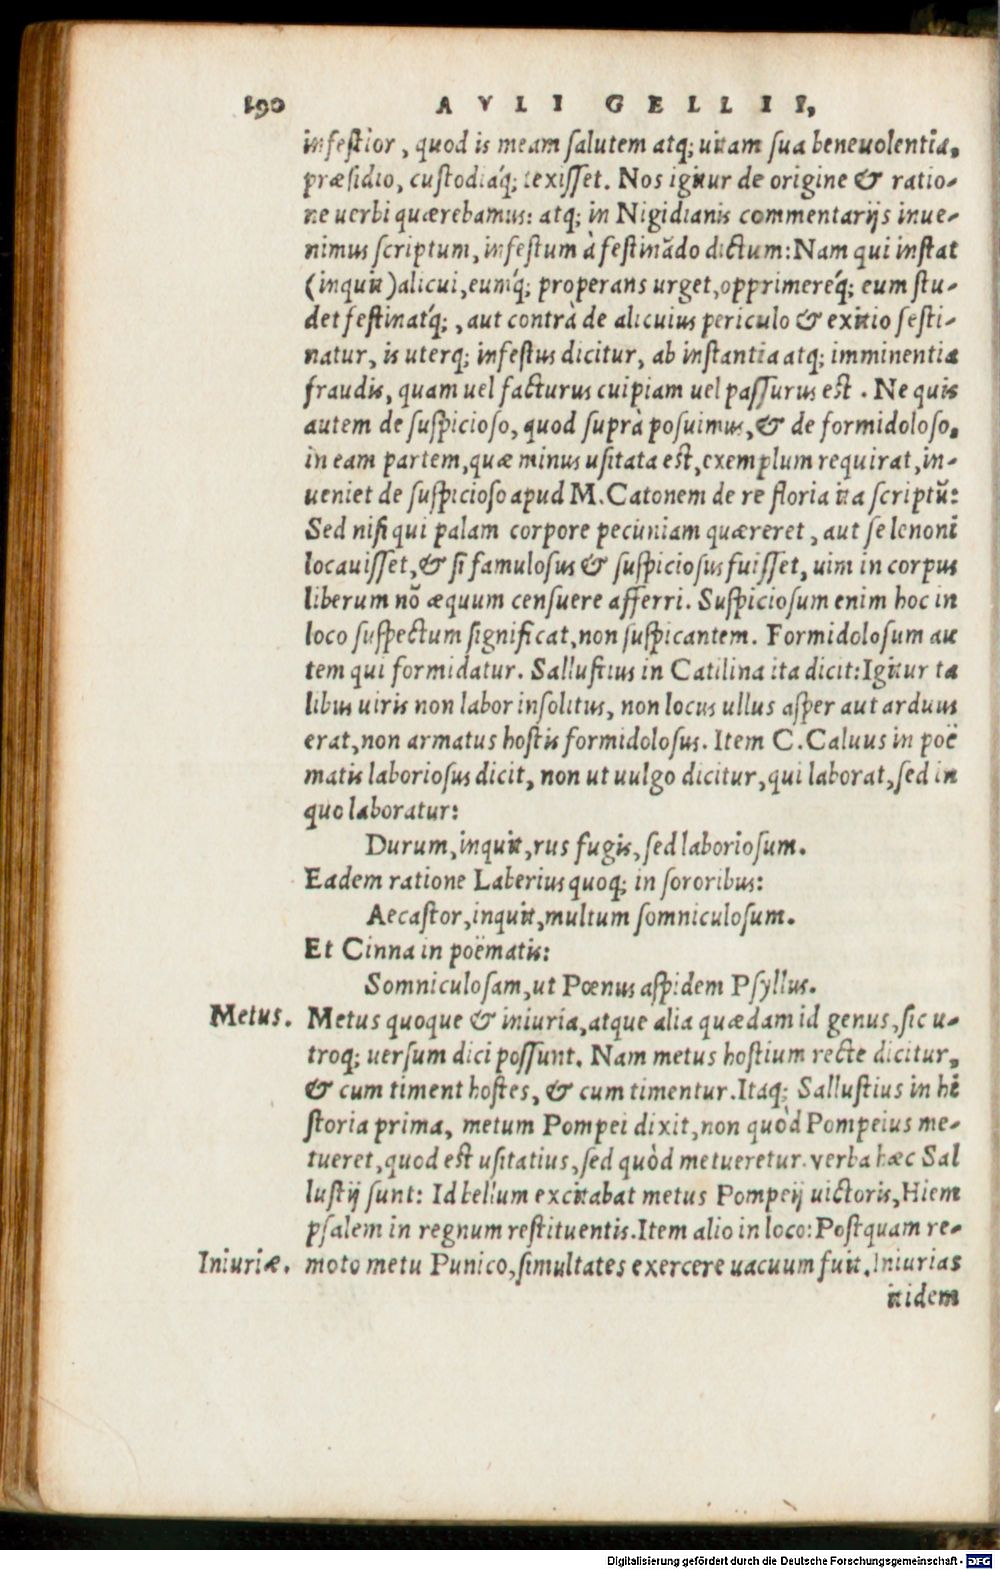 190 AVLI GELLII,
infestior, quod is meam salutem atq; uitam sua beneuolentia,
præsidio, custodiáq; texisset. Nos igitur de origine & ratio-
ne uerbi quærebamus: atq; in Nigidianis commentarijs inue-
nimus scriptum, infestum à festinādo dictum: Nam qui instat
(inquit) alicui, eumq́; properans urget, opprimereq́; eum stu-
det festinatq́;, aut contrà de alicuius periculo & exitio festi-
natur, is uterq; infestus dicitur, ab instantia atq; imminentia
fraudis, quam uel facturus cuipiam uel passurus est. Ne quis
autem de suspicioso, quod suprà posuimus, & de formidoloso,
in eam partem, quæ minus usitata est, exemplum requirat, in-
ueniet de suspicioso apud M. Catonem de re floria ita scriptū:
Sed nisi qui palam corpore pecuniam quæreret, aut se lenoni
locauisset, & si famulosus & suspiciosus fuisset, uim in corpus
liberum nō æquum censuere afferri. Suspiciosum enim hoc in
loco suspectum significat, non suspicantem. Formidolosum au
tem qui formidatur. Sallustius in Catilina ita dicit: Igitur ta
libus uiris non labor insolitus, non locus ullus asper aut arduus
erat, non armatus hostis formidolosus. Item C. Caluus in poë
matis laboriosus dicit, non ut uulgo dicitur, qui laborat, sed in
quo laboratur:
Durum, inquit, rus fugis, sed laboriosum.
Eadem ratione Laberius quoq; in sororibus:
Aecastor, inquit, multum somniculosum.
Et Cinna in poëmatis:
Somniculosam, ut Pœnus aspidem Psyllus.
Metus. Metus quoque & iniuria, atque alia quædam id genus, sic u-
troq; uersum dici possunt. Nam metus hostium recte dicitur,
& cum timent hostes, & cum timentur. Itaq; Sallustius in hi
storia prima, metum Pompei dixit, non quòd Pompeius me-
tueret, quod est usitatius, sed quòd metueretur. verba hæc Sal
lustij sunt: Id bellum excitabat metus Pompeij uictoris, Hiem
psalem in regnum restituentis. Item alio in loco: Postquam re-
Iniuriæ. moto metu Punico, simultates exercere uacuum fuit. Iniurias
itidem
Digitalisierung gefördert durch die Deutsche Forschungsgemeinschaft - DFG